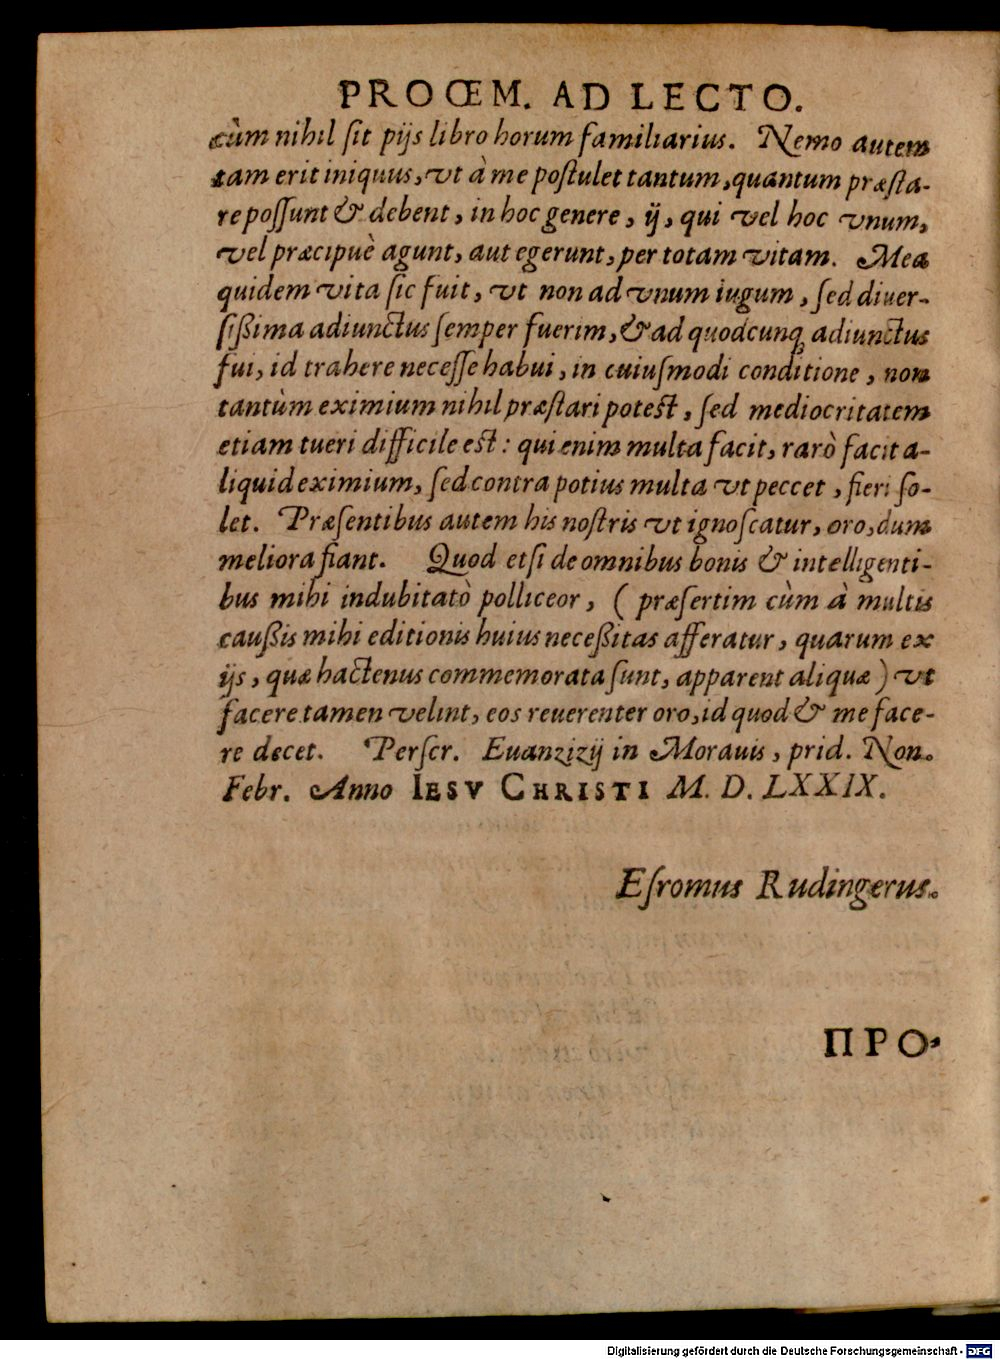 PROŒM. AD LECTO.
cùm nihil ſit pijs libro horum familiarius. Nemo autem
tam erit iniquus, vt à me poſtulet tantum, quantum præſta-
re poſſunt & debent, in hoc genere, ij, qui vel hoc vnum,
vel præcipuè agunt, aut egerunt, per totam vitam. Mea
quidem vita ſic fuit, vt non ad vnum iugum, ſed diuer-
ſißima adiunctus ſemper fuerim, & ad quodcunq; adiunctus
fui, id trahere neceſſe habui, in cuiuſmodi conditione, non
tantùm eximium nihil præſtari poteſt, ſed mediocritatem
etiam tueri difficile eſt: qui enim multa facit, rarò facit a-
liquid eximium, ſed contra potius multa vt peccet, fieri ſo-
let. Præſentibus autem his noſtris vt ignoſcatur, oro, dum
meliora fiant. Quod etſi de omnibus bonis & intelligenti-
bus mihi indubitatò polliceor, (præſertim cùm à multis
caußis mihi editionis huius neceßitas afferatur, quarum ex
ijs, quæ hactenus commemorata ſunt, apparent aliquæ) vt
facere tamen velint, eos reuerenter oro, id quod & me face-
re decet. Perſcr. Euanzizij in Morauis, prid. Non.
Febr. Anno IESV CHRISTI M. D. LXXIX.
Eſromus Rudingerus.
ΠΡΟ-
Digitalisierung gefördert durch die Deutsche Forschungsgemeinschaft - DFG